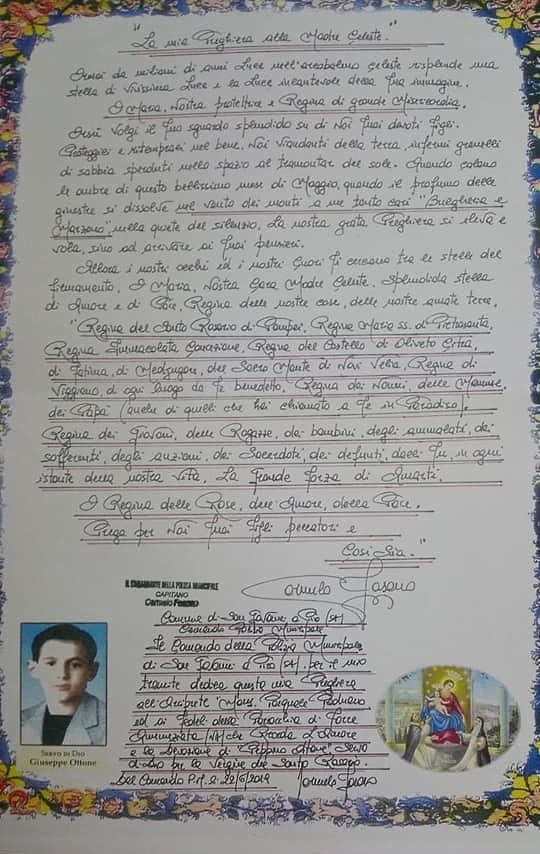 "La mia Preghiera alla Madre Celeste."
Ormai da milioni di anni Luce nell'arcobaleno Celeste risplende una
stella di vivissima Luce e la Luce incantevole della Tua immagine.
O Maria, Nostra protettrice e Regina di grande Misericordia.
Orsù Volgi il Tuo sguardo splendido su di Noi Tuoi devoti Figli.
Proteggici e ritemprati nel bene, Noi Viandanti della terra, infermi granelli
di sabbia sperduti nello spazio al tramontar del sole. Quando calano
le ombre di questo bellissimo mese di Maggio, quando il profumo delle
ginestre si dissolve nel vento dei monti a me tanto cari "Bulgheria e
Marzano" nella quiete del silenzio, La nostra grata Preghiera si eleva e
vola, sino ad arrivare ai Tuoi pensieri.
Allora i nostri occhi ed i nostri Cuori Ti cercano tra le stelle del
firmamento, O Maria, Nostra Cara Madre Celeste. Splendida stella
di Amore e di Pace, Regina delle nostre case, delle nostre amate terre,
"Regina del Santo Rosario di Pompei, Regina Maria SS. di Pietrasanta,
Regina Immacolata Concezione, Regina del Castello di Oliveto Citra,
di Fatima, di Medjugorje, del Sacro Monte di Novi Velia, Regina di
Viggiano, di ogni luogo da Te benedetto, Regina dei Nonni, delle Mamme,
dei Papà (anche di quelli che hai chiamato a Te in Paradiso),
Regina dei Giovani, delle Ragazze, dei bambini, degli ammalati, dei
sofferenti, degli anziani, dei Sacerdoti, dei defunti, dacci Tu, in ogni
istante della nostra vita, La Grande Forza di Amarti.
O Regina delle Rose, dell'Amore, della Pace,
Prega per Noi Tuoi Figli peccatori e
Così Sia."
IL COMANDANTE DELLA POLIZIA MUNICIPALE
CAPITANO
Carmelo
Comune di San Giovanni a Piro (SA)
Comando Polizia Municipale
Il Comando della Polizia Municipale
di San Giovanni a Piro (SA) per il mio
tramite dedica questa mia Preghiera
all'Arciprete Mons. Pasquale Paduano
ed ai Fedeli della Parrocchia di Torre
Annunziata (NA) che Ricorda L'Amore
e la Devozione di "Peppino Ottone" Servo
di Dio per la Vergine del Santo Rosario.
Dal Comando P.M. li 22/5/2019
SERVO DI DIO
Giuseppe Ottone